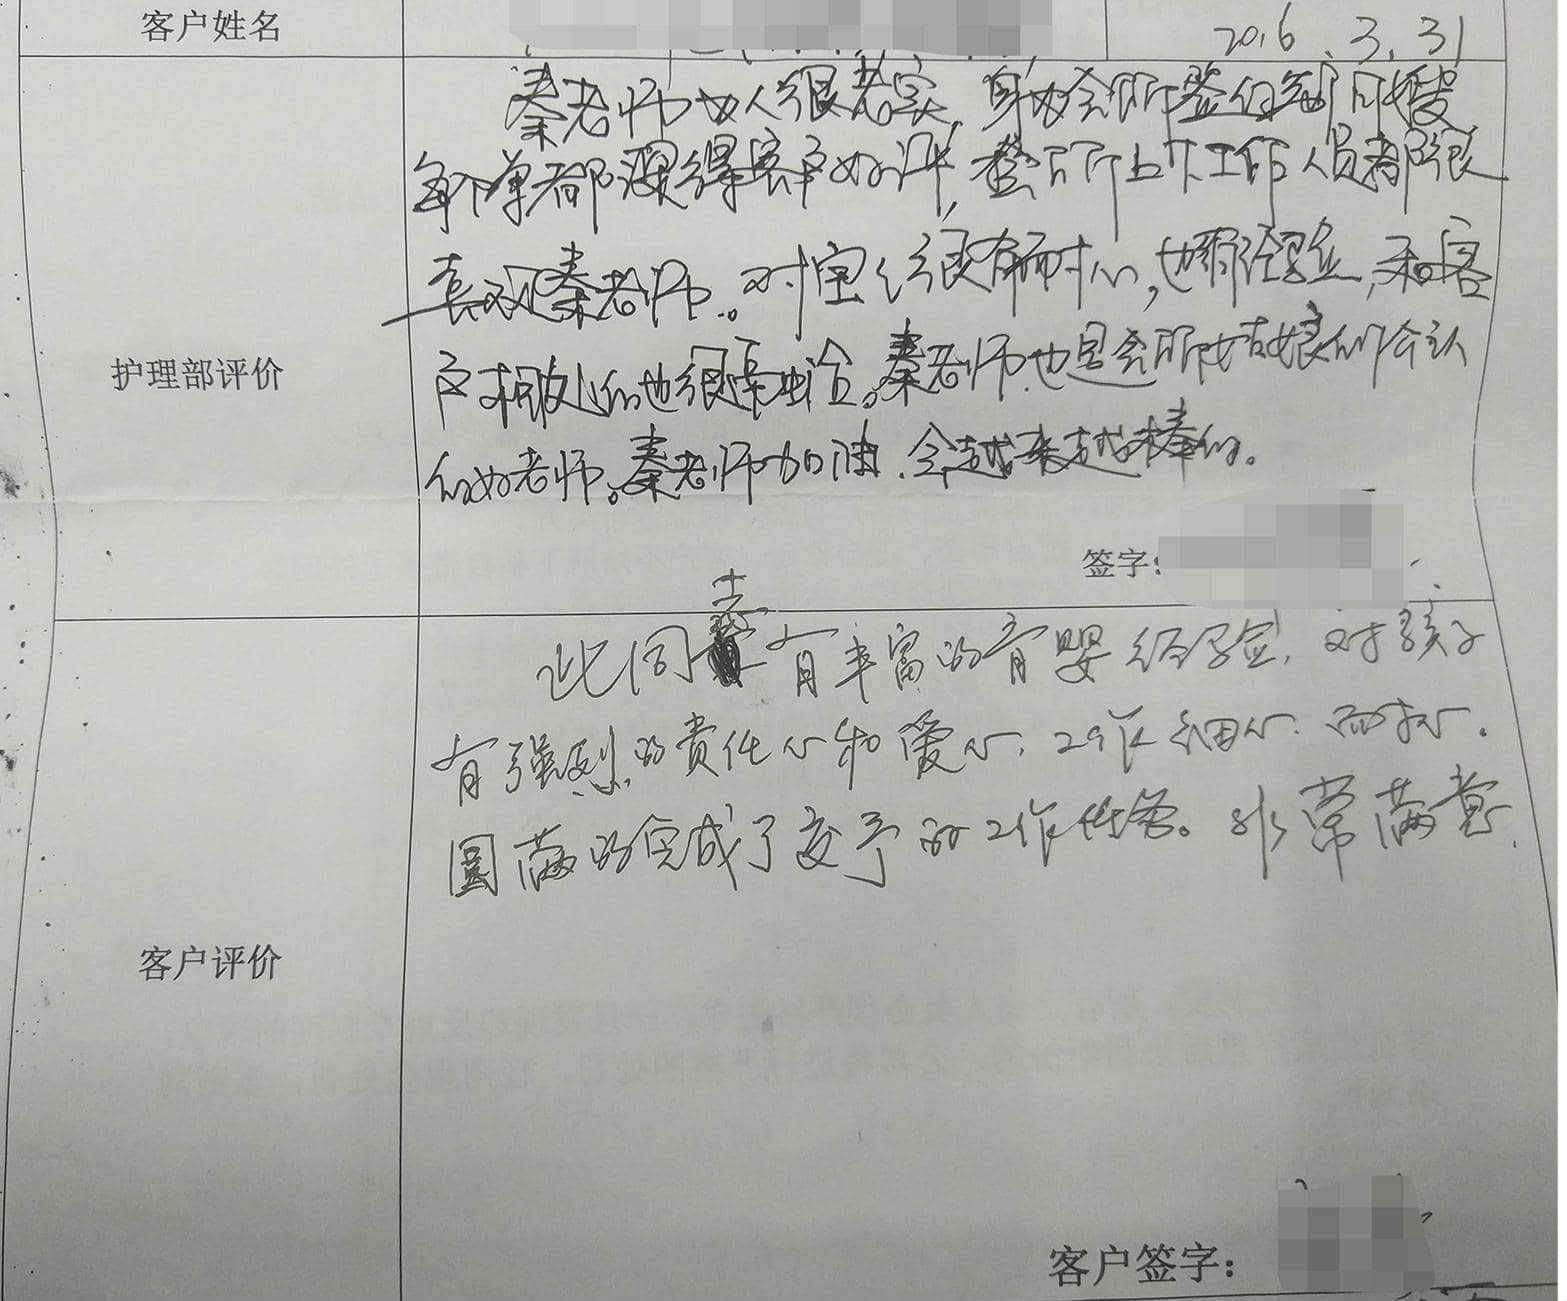 客户姓名
2016.3.31
秦老师为人很老实,身为会所签约的月嫂
每个单都深得客户好评,整个所上下工作人员都很
喜欢秦老师。对宝宝很有耐心,也有经验,和客
户相处的也很亲切。秦老师也是会所姑娘们公认
护理部评价
的好老师。秦老师加油.会越来越棒的。
签字:
此同志有丰富的育婴经验,对孩子
有强烈的责任心和爱心,工作细心.耐心.
圆满的完成了交予的工作任务。非常满意.
客户评价
客户签字: